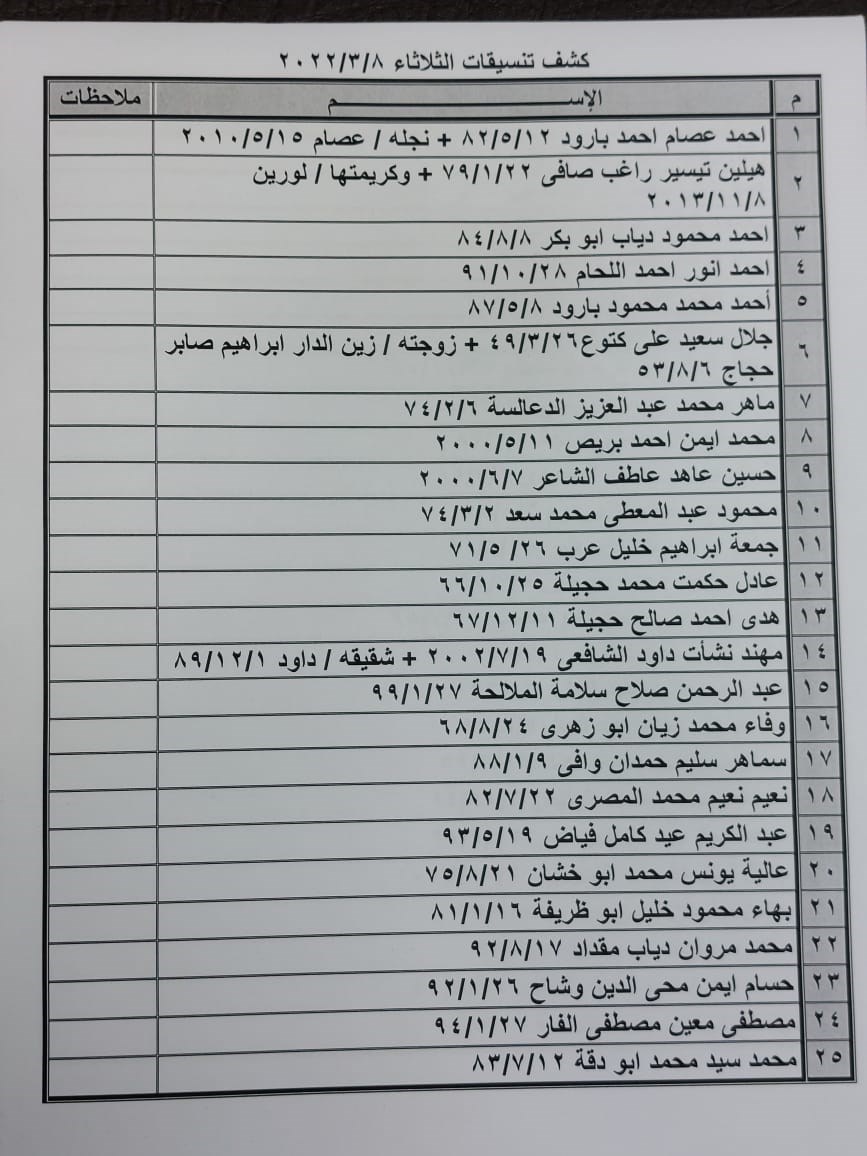 كشف تنسيقات الثلاثاء ٢٠٢٢/٣/٨
م الإســـــــــــــم ملاحظات
١ احمد عصام احمد بارود ٨٢/٥/١٢ + نجله / عصام ٢٠١٠/٥/١٥
٢ هيلين تيسير راغب صافى ٧٩/١/٢٢ + وكريمتها / لورين
٢٠١٣/١١/٨
٣ احمد محمود دياب ابو بكر ٨٤/٨/٨
٤ احمد انور احمد اللحام ٩١/١٠/٢٨
٥ أحمد محمد محمود بارود ٨٧/٥/٨
٦ جلال سعيد على كتوع ٤٩/٣/٢٦ + زوجته / زين الدار ابراهيم صابر
حجاج ٥٣/٨/٦
٧ ماهر محمد عبد العزيز الدعالسة ٧٤/٢/٦
٨ محمد ايمن احمد بريص ٢٠٠٠/٥/١١
٩ حسين عاهد عاطف الشاعر ٢٠٠٠/٦/٧
١٠ محمود عبد المعطى محمد سعد ٧٤/٣/٢
١١ جمعة ابراهيم خليل عرب ٧١/٥ /٢٦
١٢ عادل حكمت محمد حجيلة ٦٦/١٠/٢٥
١٣ هدى احمد صالح حجيلة ٦٧/١٢/١١
١٤ مهند نشأت داود الشافعى ٢٠٠٢/٧/١٩ + شقيقه / داود ٨٩/١٢/١
١٥ عبد الرحمن صلاح سلامة الملالحة ٩٩/١/٢٧
١٦ وفاء محمد زيان ابو زهرى ٦٨/٨/٢٤
١٧ سماهر سليم حمدان وافى ٨٨/١/٩
١٨ نعيم نعيم محمد المصرى ٨٢/٧/٢٢
١٩ عبد الكريم عيد كامل فياض ٩٣/٥/١٩
٢٠ عالية يونس محمد ابو خشان ٧٥/٨/٢١
٢١ بهاء محمود خليل ابو ظريفة ٨١/١/١٦
٢٢ محمد مروان دياب مقداد ٩٢/٨/١٧
٢٣ حسام ايمن محى الدين وشاح ٩٢/١/٢٦
٢٤ مصطفى معين مصطفى الفار ٩٤/١/٢٧
٢٥ محمد سيد محمد ابو دقة ٨٣/٧/١٢